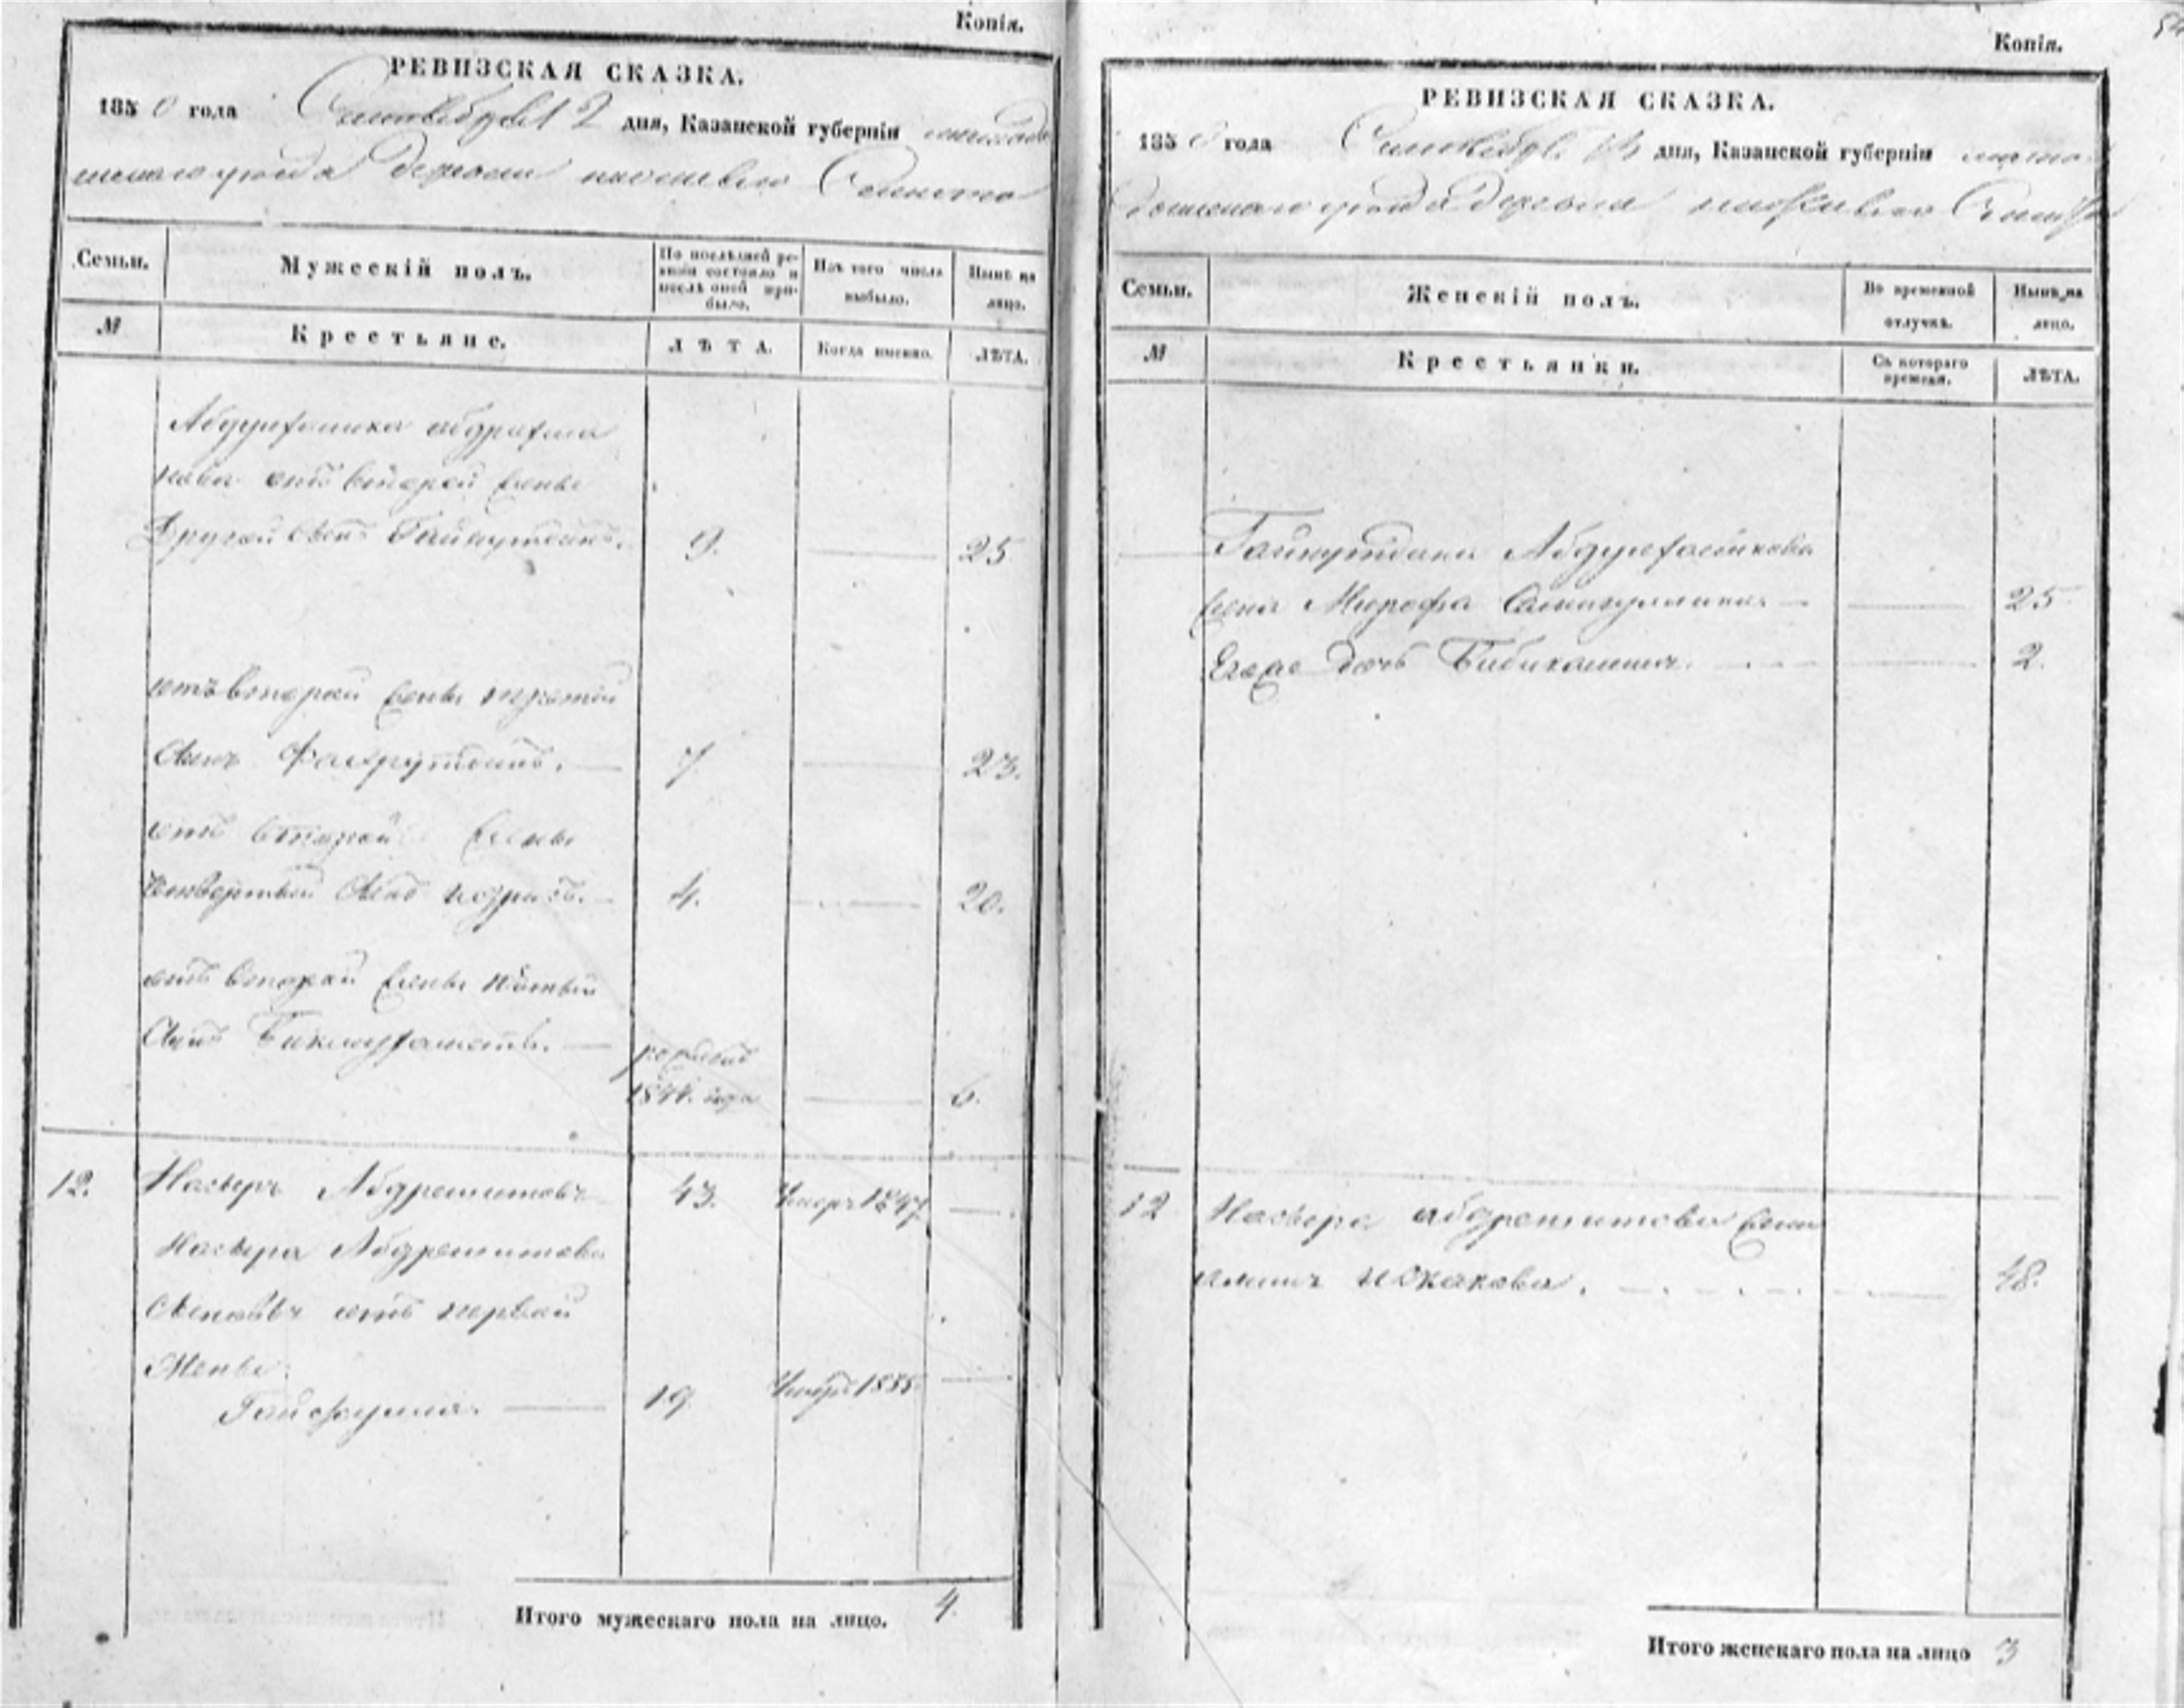 Копія.
РЕВИЗСКАЯ СКАЗКА.
1850 года Сентября 12 дня, Казанской губерніи мамадыш
скаго уѣзда деревни
Семьи.
Мужескій полъ.
По послѣдней ре-
визіи состояло и
послѣ оной при-
было.
Изъ того числа
выбыло.
Нынѣ на
лицо.
№
Крестьяне.
ЛѢТА.
Когда именно.
ЛѢТА.
Абдулхалика абдрахма
нова отъ второй жены
Другой сынъ Гайнутдинъ. 9. 25
отъ второй жены третій
Сынъ Фахрутдинъ. 7 23.
отъ второй жены
Четвертый сынъ Идрисъ. 4. 20.
отъ второй жены пятый
Сынъ Бикмухаметь.
рожденъ
1844. года 6.
12. Насыръ Абдрешитовъ 43. Умеръ 1847
Насыра Абдрешитова
Сыновья отъ первой
Жены:
19. Умеръ 1835
Итого мужескаго пола на лицо. 4.
Копія.
РЕВИЗСКАЯ СКАЗКА.
1850 года Сентября 12 дня, Казанской губерніи мама
дышскаго уѣзда деревни
Семьи.
Женскій полъ.
Во временной
отлучкѣ.
Нынѣ на
лицо.
№
Крестьянки.
Съ котораго
времени.
ЛѢТА.
Гайнутдина Абдулхаликова
жена 25
Егоже дочь Бибикамиля. 2.
12 Насыра абдрешитова жена
Исхакова. 48.
Итого женскаго пола на лицо 3